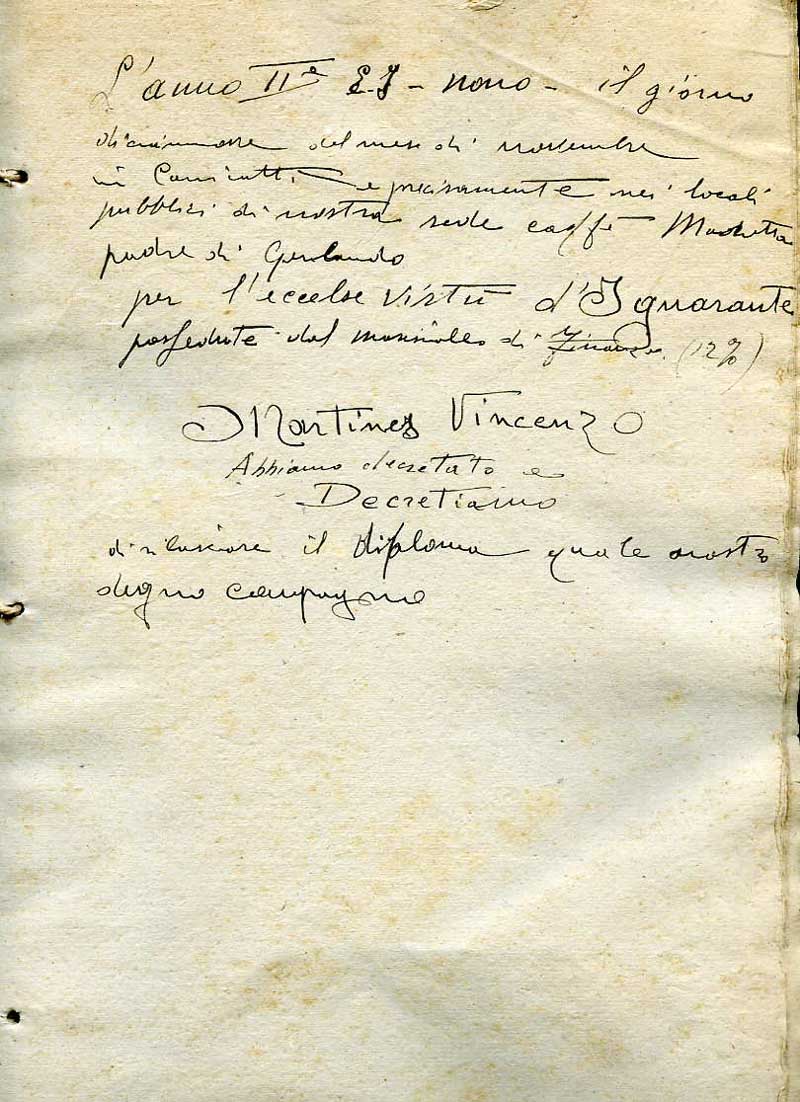 L'anno IIº E.I - nono - il giorno
diciannove del mese di novembre
in Canicattì e precisamente nei locali
pubblici di nostra sede caffè
padre di Gerlando
per l'eccelse virtù d'Ignorante
possedute dal di Finanza. (12%)
Martinez Vincenzo
Abbiamo decretato e
Decretiamo
di rilasciare il diploma quale nostro
degno compagno